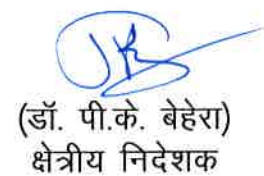 (डॉ. पी.के. बेहेरा)
क्षेत्रीय निदेशक